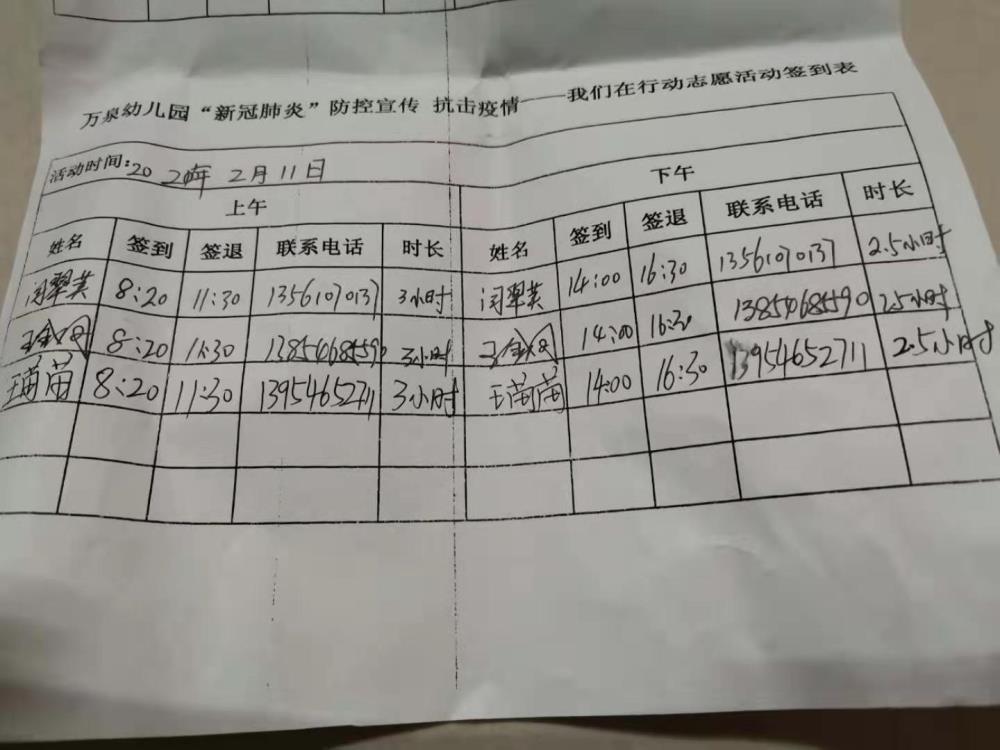 万泉幼儿园“新冠肺炎”防控宣传 抗击疫情——我们在行动志愿活动签到表
活动时间:2020年 2月11日
上午 下午
姓名 签到 签退 联系电话 时长 姓名 签到 签退 联系电话 时长
闫翠英 8:20 11:30 13561070137 3小时 闫翠英 14:00 16:30 13561070137 2.5小时
8:20 11:30 13854685590 3小时 14:00 16:30 13854685590 2.5小时
王苗苗 8:20 11:30 13954652711 3小时 王苗苗 14:00 16:30 13954652711 2.5小时